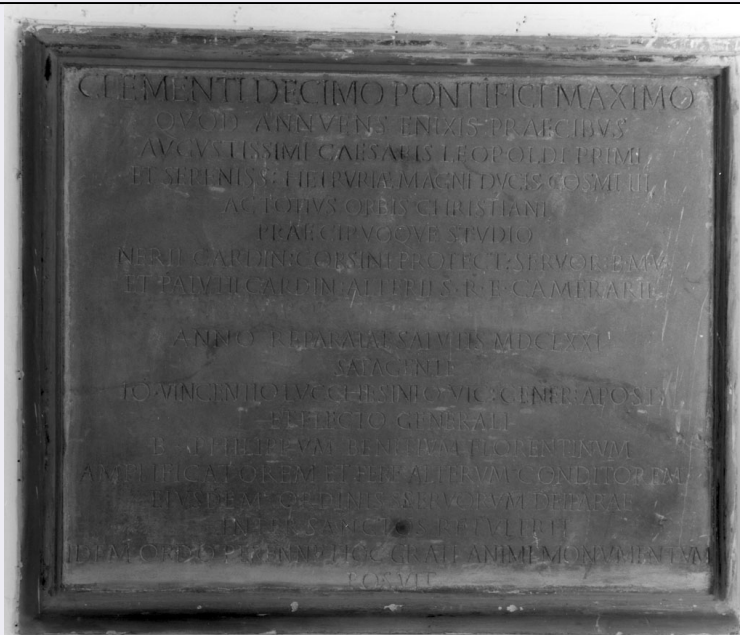 CLEMENTI DECIMO PONTIFICI MAXIMO
QVOD ANNVENS ENIXIS PRAECIBVS
AVGVSTISSIMI CAESARIS LEOPOLDI PRIMI
ET SERENISS: HETRVRIAE MAGNI DVCIS COSMI III
AC TOTIVS ORBIS CHRISTIANI
PRAECIPVOQVE STVDIO
NERII CARDIN: CORSINI PROTECT: SERVOR: B. M. V.
ET PALVTII CARDIN: ALTERII S. R. E. CAMERARII
ANNO REPARATAE SALVTIS
SATAGENTE
IO: VINCENTIO LVCCHESINIO VIC: GENER: APOST:
ET ELECTO GENERALI
B. PHILIPPVM BENITIVM FLORENTINVM
AMPLIFICATOREM ET FERE ALTERVM CONDITOREM
EIVSDEM ORDINIS SERVORVM DEIPARAE
INTER SANCTOS RETVLERIT
IDEM ORDO PERENNE HOC GRATI ANIMI MONVMENTVM
POSVIT